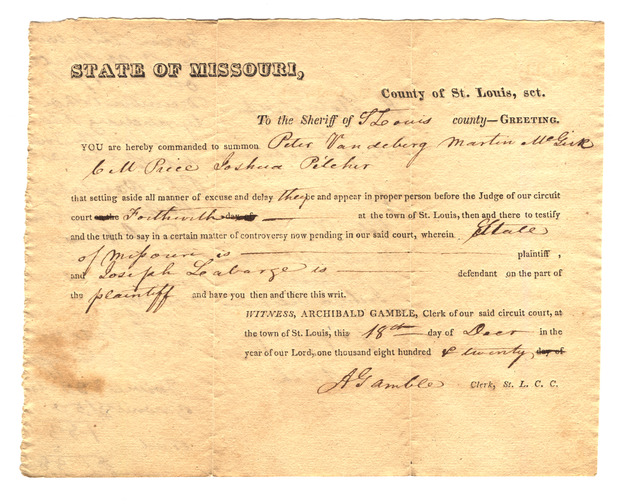 STATE OF MISSOURI,
County of St. Louis, sct.
To the Sheriff of St Louis county—GREETING.
YOU are hereby commanded to summon Peter Vandeberg Martin McGirk
C M Price Joshua Pilcher
that setting aside all manner of excuse and delay they be and appear in proper person before the Judge of our circuit
court on the Forthwith day of — at the town of St. Louis, then and there to testify
and the truth to say in a certain matter of controversy now pending in our said court, wherein State
of Missouri is — plaintiff,
and Joseph Labarge is — defendant on the part of
the plaintiff and have you then and there this writ.
WITNESS, ARCHIBALD GAMBLE, Clerk of our said circuit court, at
the town of St. Louis, this 18th day of Decr in the
year of our Lord, one thousand eight hundred & twenty, day of
A Gamble Clerk, St. L. C. C.